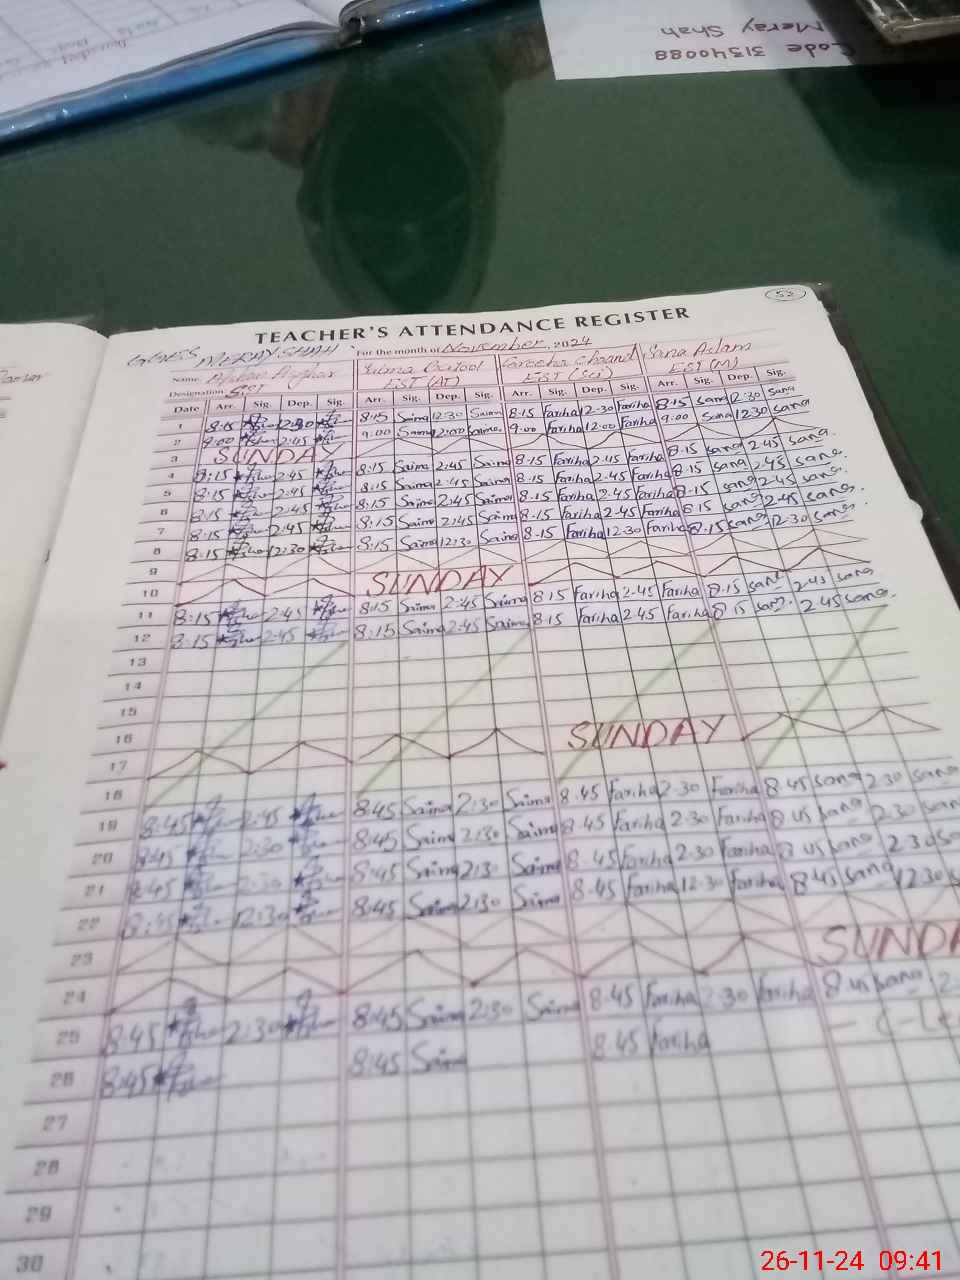 Code 31540088
Meray Shah
52
TEACHER'S ATTENDANCE REGISTER
GGES MERAY SHAH For the month of November, 2024
Name Sana Aslam
Designation SST EST (AT) EST (Sci) EST (M)
Date Arr. Sig. Dep. Sig. Arr. Sig. Dep. Sig. Arr. Sig. Dep. Sig. Arr. Sig. Dep. Sig.
1 8:15 12:30 8:15 Saima 12:30 Saima 8:15 Fariha 2:30 Fariha 8:15 Sana 12:30 Sana
2 9:00 2:45 9:00 Saima 12:00 Saima 9:00 Fariha 12:00 Fariha 9:00 Sana 12:30 Sana
3 SUNDAY
4 8:15 2:45 8:15 Saima 2:45 Saima 8:15 Fariha 2:45 Fariha 8:15 Sana 2:45 Sana
5 8:15 2:45 8:15 Saima 2:45 Saima 8:15 Fariha 2:45 Fariha 8:15 Sana 2:45 Sana
6 8:15 2:45 8:15 Saima 2:45 Saima 8:15 Fariha 2:45 Fariha 8:15 Sana 2:45 Sana
7 8:15 2:45 8:15 Saima 2:45 Saima 8:15 Fariha 2:45 Fariha 8:15 Sana 2:45 Sana
8 8:15 12:30 8:15 Saima 12:30 Saima 8:15 Fariha 12:30 Fariha 8:15 Sana 12:30 Sana
9
10 SUNDAY
11 8:15 2:45 8:15 Saima 2:45 Saima 8:15 Fariha 2:45 Fariha 8:15 Sana 2:45 Sana
12 8:15 2:45 8:15 Saima 2:45 Saima 8:15 Fariha 2:45 Fariha 8:15 Sana 2:45 Sana
13
14
15
16
17 SUNDAY
18
19 8:45 2:45 8:45 Saima 2:30 Saima 8:45 Fariha 2:30 Fariha 8:45 Sana 2:30 Sana
20 8:45 2:30 8:45 Saima 2:30 Saima 8:45 Fariha 2:30 Fariha 8:45 Sana 2:30 Sana
21 8:45 2:30 8:45 Saima 2:30 Saima 8:45 Fariha 2:30 Fariha 8:45 Sana 2:30
22 8:45 12:30 8:45 Saima 2:30 Saima 8:45 Fariha 12:30 Fariha 8:45 Sana 12:30
23
24 SUNDA
25 8:45 2:30 8:45 Saima 2:30 Saima 8:45 Fariha 2:30 Fariha 8:45 Sana
26 8:45 8:45 Saima 8:45 Fariha
27
28
29
30
26-11-24 09:41